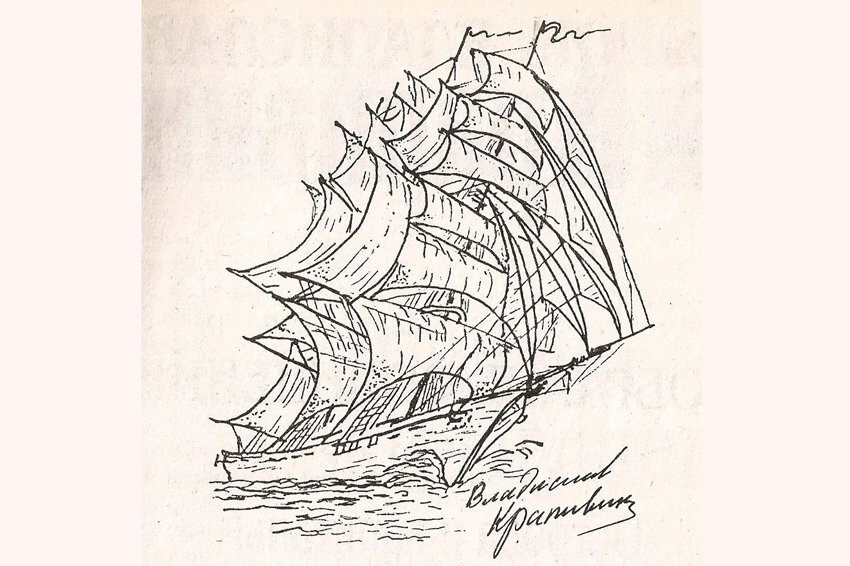 Владислав
Крапивин